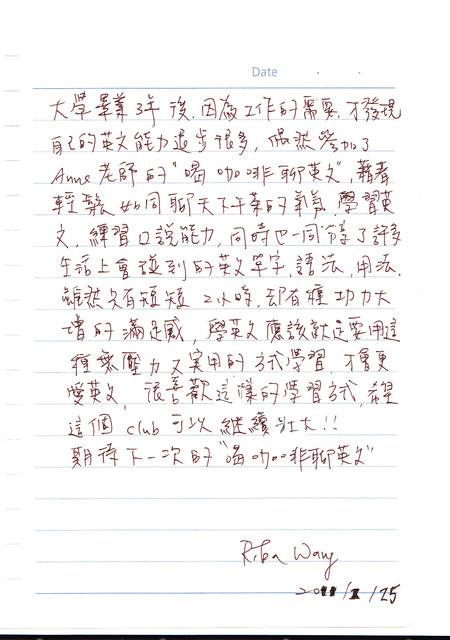 Date
大學畢業3年後,因為工作的需要,才發現
自己的英文能力退步很多,偶然參加了
Anne老師的"喝咖啡聊英文",藉著
輕鬆如同聊天下午茶的氣氛,學習英
文,練習口說能力,同時也一同分享了許多
生活上會碰到的英文單字,語法,用法.
雖然只有短短2小時,卻有種功力大
增的滿足感,學英文應該就是要用這
種無壓力又實用的方式學習,才會更
愛英文,很喜歡這樣的學習方式,希望
這個club可以繼續壯大!!
期待下一次的"喝咖啡聊英文"
Wang
2011/1/25